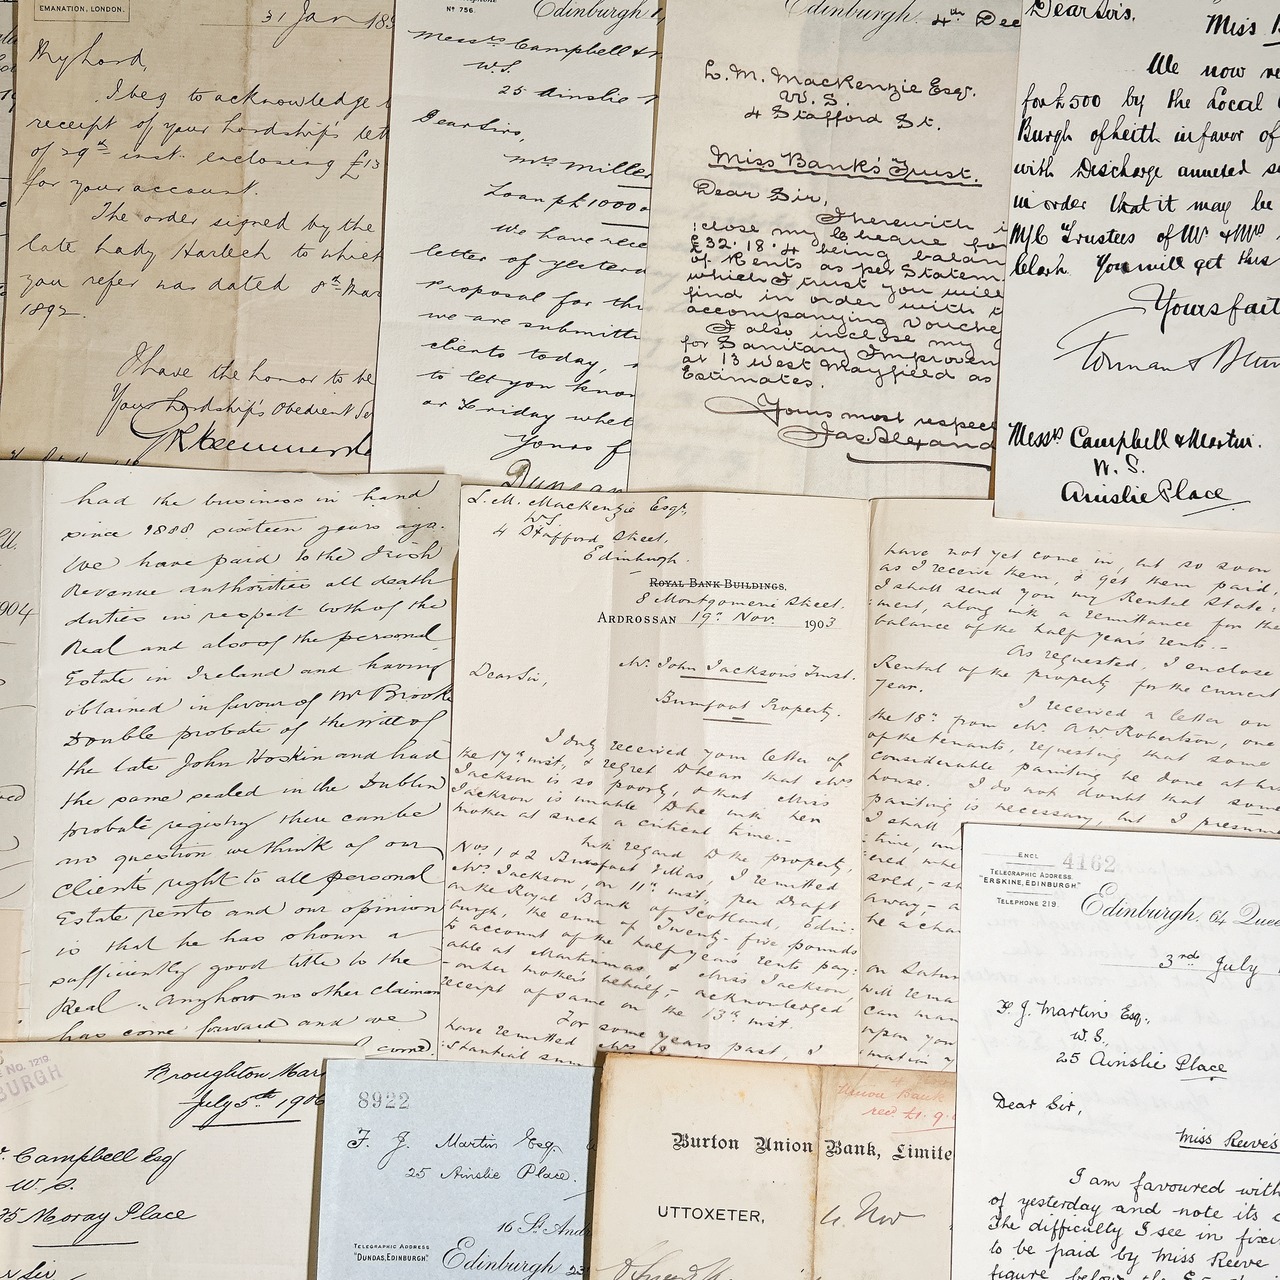 EMANATION, LONDON.
31 Jan 189
My Lord,
I beg to acknowledge
receipt of your Lordship's let
of 29th inst. enclosing £13
for your account.
The order signed by the
late Lady Harlech to which
you refer was dated 8th Mar
1892.
I have the honor to be
Your Lordship's Obedient Se
No 756.
Edinburgh
Messrs Campbell &
W.S.
25 Ainslie
Dear Sirs,
Mrs Miller
Loan of £1000
We have rece
letter of yesterd
proposal for th
we are submitti
clients today,
to let you know
or Friday whet
Yours f
Duncan
Edinburgh. 4th Dec
L. M. Mackenzie Esq.
W. S.
4 Stafford St.
Miss Bank's Trust.
Dear Sir,
Therewith i
:close my cheque for
£32.18.4 being balan
of Rents as per Statem
which I trust you will
find in order with t
accompanying vouche
I also inclose my
for Sanitary Improvem
at 13 West Mayfield as
Estimates.
Yours most respec
Jas Alexand
Dear Sirs.
Miss
We now re
for £500 by the Local
Burgh of Leith in favor of
with Discharge annexed
in order that it may be
M/C Trustees of Mr & Mrs
Clark. You will get this
Yours fait
Messrs Campbell & Martin.
W. S.
Ainslie Place
904
had the business in hand
since 1888 sixteen years ago.
We have paid to the Irish
Revenue authorities all death
duties in respect both of the
Real and also of the personal
Estate in Ireland and having
obtained in favour of Mr Brooke
Double probate of the will of
the late John Hoskin and had
the same sealed in the Dublin
probate registry there can be
no question we think of our
Clients right to all personal
Estate rents and our opinion
is that he has shown a
sufficiently good title to the
Real. Anyhow no other claiman
has come forward and we
L. M. Mackenzie Esqr,
WS
4 Stafford Street,
Edinburgh.
ROYAL BANK BUILDINGS,
8 Montgomerie Street.
ARDROSSAN 19th Nov. 1903
Dear Sir,
Mr. John Jackson's Trust.
Burnfoot Property.
I duly received your letter of
the 17th inst, & regret to hear that Mrs
Jackson is so poorly, & that Miss
Jackson is unable to be with her
mother at such a critical time.-
With regard to the property,
Nos 1 & 2 Burnfoot Villas, I remitted
Mrs Jackson, on 11th inst, per Draft
on the Royal Bank of Scotland, Edin-
burgh, the sum of Twenty-five pounds
to account of the half years rents pay:
able at Martinmas, & Miss Jackson,
on her mother's behalf, acknowledged
receipt of same on the 13th inst.
For some years past, I
have remitted Mrs
stantial sum
have not yet come in, but so soon
as I receive them, & get them paid,
I shall send you my Rental State:
:ment, along with a remittance for the
balance of the half year's rents.-
As requested, I enclose
Rental of the property for the current
year.
I received a letter on
the 18th from Mr. A. W. Robertson, one
of the tenants, requesting that some
considerable painting be done at his
house. I do not doubt that some
painting is necessary, but I presume
I shall
time,
away,
be a cha
on Satur
will rema
can man
upon you
ENCL
4162
TELEGRAPHIC ADDRESS
"ERSKINE, EDINBURGH"
TELEPHONE 219.
Edinburgh. 64 Quee
3rd July
F. J. Martin Esq.,
W. S.,
25 Ainslie Place
Dear Sir,
Miss Reeve's
I am favoured with
of yesterday and note its
The difficulty I see in fixi
to be paid by Miss Reeve
figure below the
No. 1219
BURGH
Broughton Mar
July 5th 1906
Campbell Esq
W. S.
35 Moray Place
Sir
8922
F. J. Martin Esq.
25 Ainslie Place.
16 St. And
TELEGRAPHIC ADDRESS
"DUNDAS, EDINBURGH"
Edinburgh 23
Union Bank
rec. £1. 9.
Burton Union Bank, Limite
UTTOXETER,
Nov